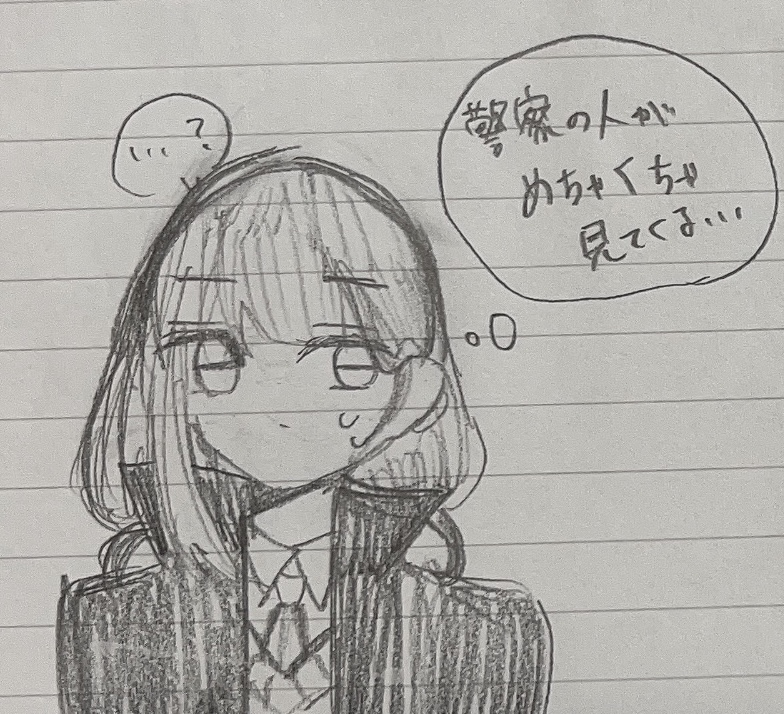 …?
警察の人が
めちゃくちゃ
見てくる…